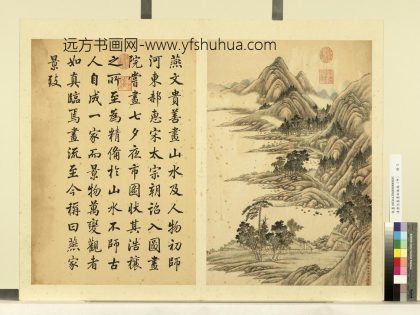 远方书画网-www.yfshuhua.com
燕文貴善畫山水及人物初師
河東郝惠宋太宗朝詔入圖畫
院嘗畫七夕夜市圖狀其浩穰
之所至為精備於山水不師古
人自成一家而景物萬變觀者
如真臨焉畫流至今稱曰燕家
景致